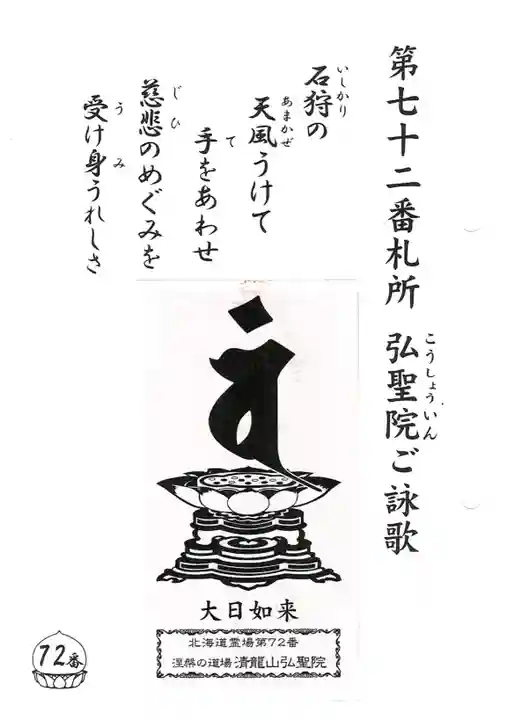 第七十二番札所 弘聖院ご詠歌
こうしょういん
石狩の
いしかり
天風うけて
あまかぜ
手をあわせ
て
慈悲のめぐみを
じひ
受け身うれしさ
う み
大日如来
北海道霊場第72番
涅槃の道場 清龍山弘聖院
72番